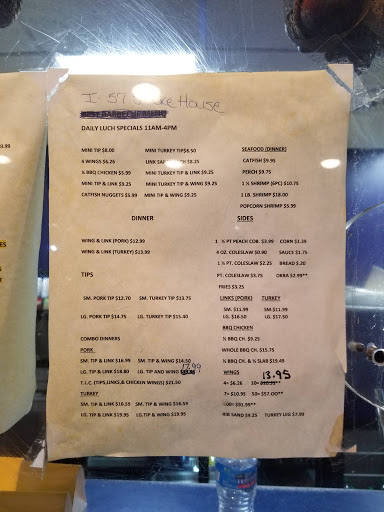 I-57 Smoke House
DAILY LUCH SPECIALS 11AM-4PM
MINI TIP $8.00 MINI TURKEY TIP$6.50
4 WINGS $6.26 LINK $8.25
½ BBQ CHICKEN $5.99 MINI TIP & LINK $9.25
MINI TIP & LINK $9.25 MINI TURKEY TIP & WING $9.25
CATFISH NUGGETS $5.99 MINI TIP & WING $9.25
SEAFOOD (DINNER)
CATFISH $9.95
PERCH $9.75
1 ½ SHRIMP (6PC) $10.75
1 LB. SHRIMP $18.00
POPCORN SHRIMP $5.99
DINNER
WING & LINK (PORK) $12.99
WING & LINK (TURKEY) $13.99
TIPS
SM. PORK TIP $12.70 SM. TURKEY TIP $13.75
LG. PORK TIP $14.75 LG. TURKEY TIP $15.40
COMBO DINNERS
PORK
SM. TIP & LINK $16.99 SM. TIP & WING $14.50
LG. TIP & LINK $18.80 LG. TIP AND WING 17.99
T.I.C (TIPS,LINKS,& CHICKEN WINGS) $21.50
TURKEY
SM. TIP & LINK $16.59 SM. TIP & WING $16.59
LG. TIP & LINK $19.95 LG. TIP & WING $19.95
SIDES
1 ½ PT PEACH COB. $3.99 CORN $1.39
4 OZ. COLESLAW $0.90 SAUCE $1.75
1 ½ PT COLESLAW $2.25 BREAD $.20
PT. COLESLAW $3.75 OKRA $2.99**
FRIES $3.25
LINKS (PORK) TURKEY
SM. $11.99 SM. $11.99
LG. $16.50 LG. $17.50
BBQ CHICKEN
½ BBQ CH. $9.25
WHOLE BBQ CH. $15.75
½ BBQ CH. & ½ SLAB $19.49
WINGS 13.95
4= $6.26 10=
7= $10.95 50= $57.00**
100= $91.99**
RIB SAND $9.25 TURKEY LEG $7.99